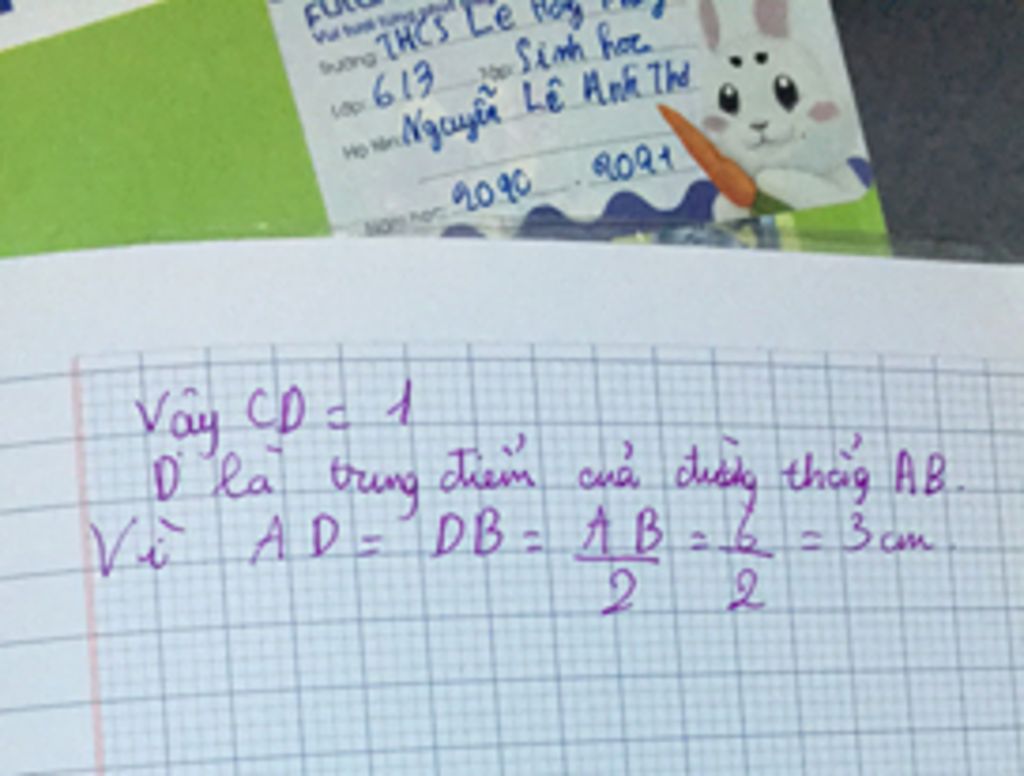 Trường: THCS Lê
Lớp: 6/3 Tập: Sinh học
Họ tên: Nguyễn Lê Anh Thơ
Năm học: 2020 - 2021
Vây CD = 1
D là trung điểm của đường thẳg AB.
Vì AD = DB = AB/2 = 6/2 = 3 cm.